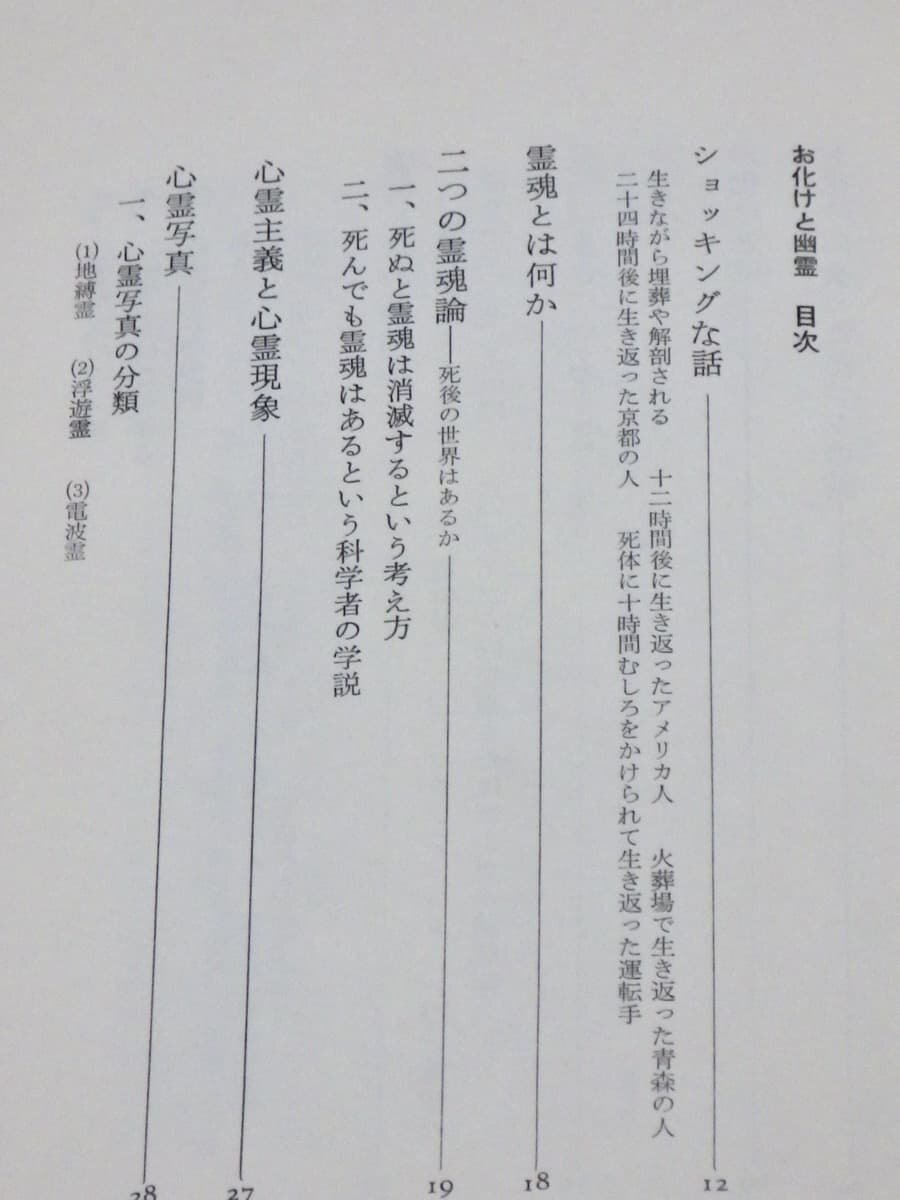 お化けと幽霊　目次
ショッキングな話 12
生きながら埋葬や解剖される　十二時間後に生き返ったアメリカ人　火葬場で生き返った青森の人
二十四時間後に生き返った京都の人　死体に十時間むしろをかけられて生き返った運転手
霊魂とは何か 18
二つの霊魂論──死後の世界はあるか 19
一、死ぬと霊魂は消滅するという考え方
二、死んでも霊魂はあるという科学者の学説
心霊主義と心霊現象 27
心霊写真 28
一、心霊写真の分類
(1)地縛霊　(2)浮遊霊　(3)電波霊